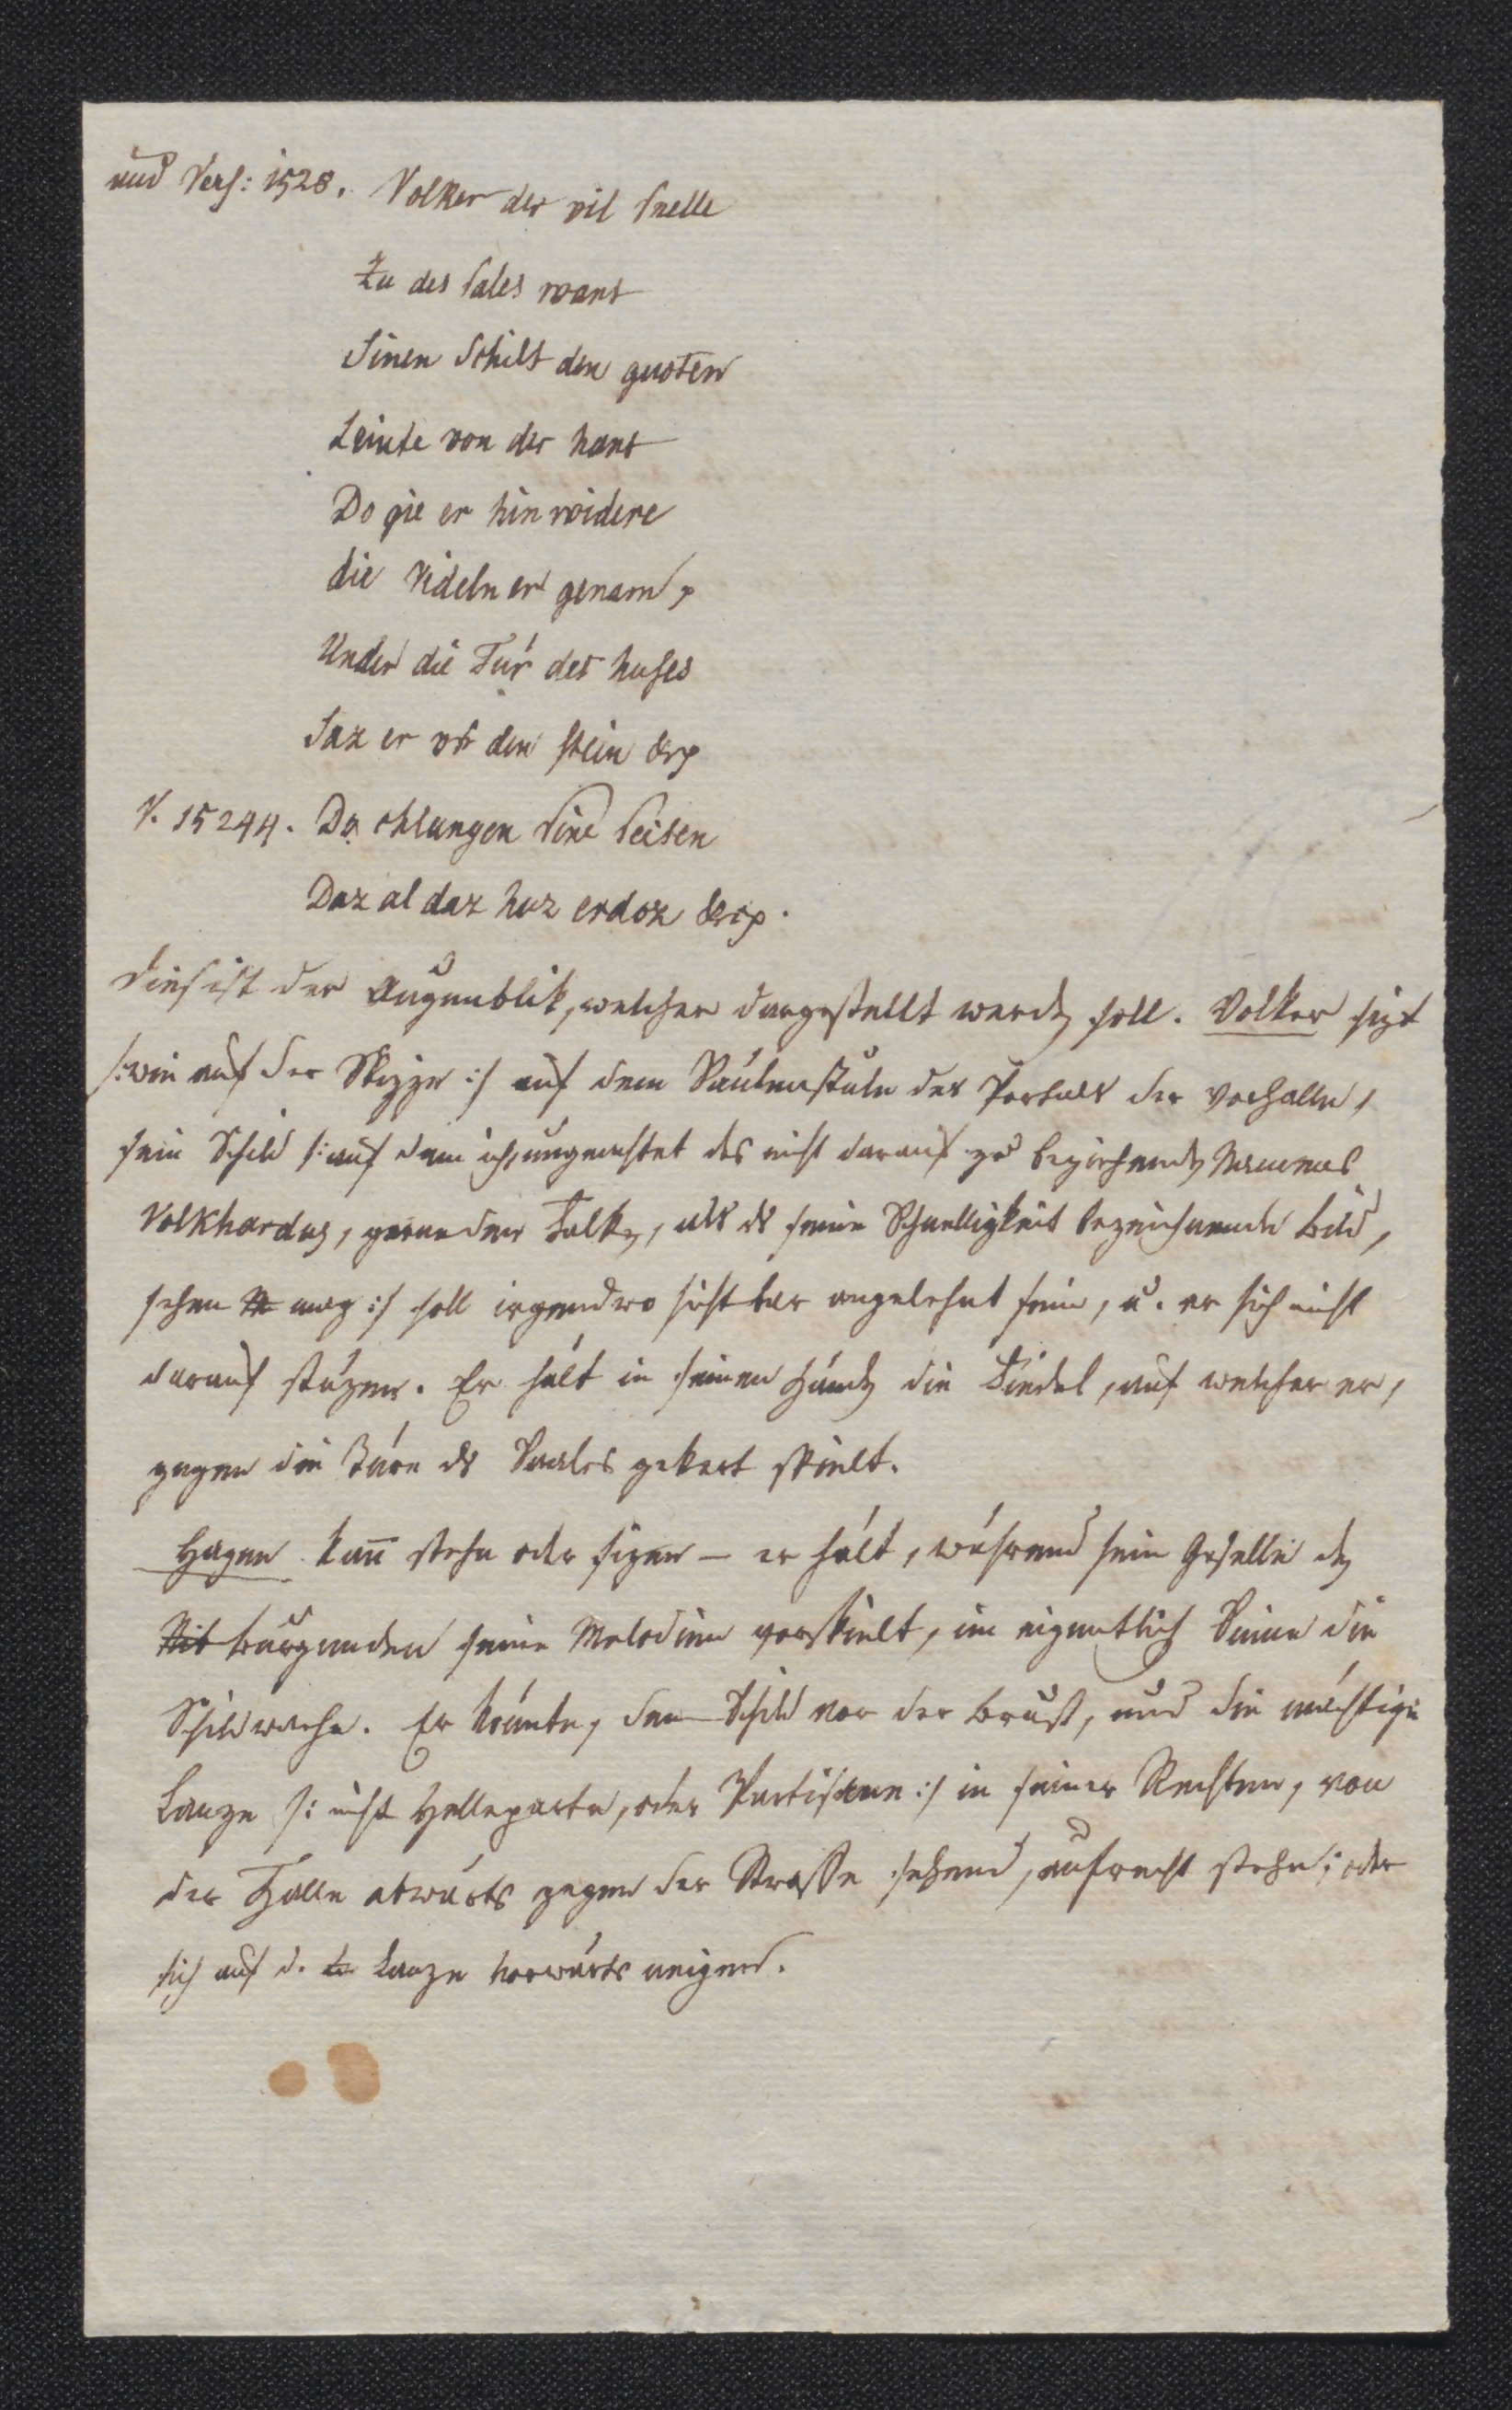 und Vers: 1528. Volker der vil snelle
Zu des sales want
Sinen Schilt den guoten
Leinte von der hant
Do gie er hin widere
die Videln er genam,
Under die Tür des huses
Saz er vf den stein &c
V. 15244. Do chlungen Sine Seiten
Daz al daz huz erdoz &c.
Dies ist der Augenblik, welcher dargestellt werden soll. Volker sizt
/: wie auf der Skizze :/ auf dem Säulenstule des Portals der Vorhalle,
sein Schild /: auf dem ich, ungeachtet des nicht darauf zu beziehenden Namens
Volkhardus, gerne den Falken, als ds seine Schnelligkeit bezeichnende Bild,
sehen mag :/ soll irgendwo sichtbar angelehnt sein, u. er sich nicht
darauf stüzen. Er hält in seinen Händen die Fiedel, auf welcher er,
gegen die Türe ds Saales gekert spielt.
Hagen kan̄ stehn oder sizen – er hält, während sein Geselle den
Burgunden seine Melodien vorspielt, im eigentlich Sinne die
Schildwache. Er könnte, den Schild vor der Brust, und die mächtige
Lanze /: nicht Helleparte, oder Partisane :/ in seiner Rechten, von
der Halle abwärts gegen der Strasse sehend, aufrecht stehn; oder
sich auf d. Lanze vorwärts neigend.